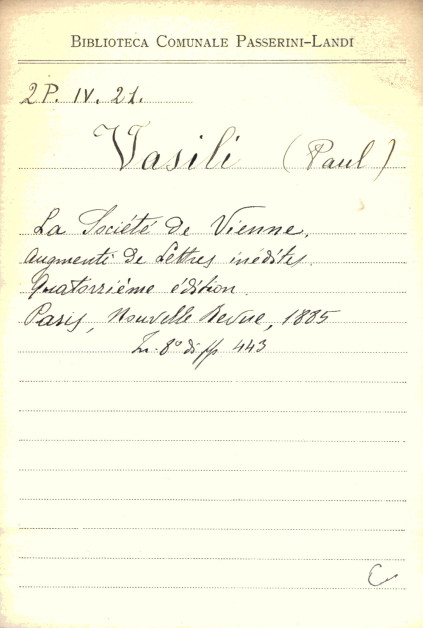 BIBLIOTECA COMUNALE PASSERINI-LANDI
2P. IV. 21.
Vasili (Paul)
La Société de Vienne.
Augmenti de Lettres inédites.
Quatorzième édition.
Paris, Nouvelle Revue, 1885
In-8° di pp 443
C